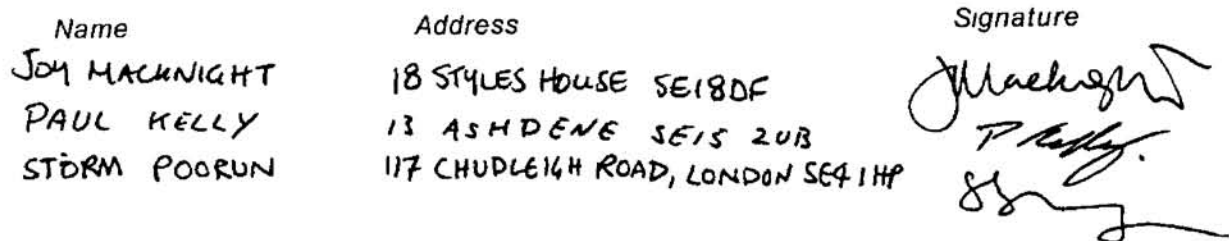 Name Address Signature
JOY MACKNIGHT 18 STYLES HOUSE SE1 8DF JMacknight
PAUL KELLY 13 ASHDENE SE15 2UB P Kelly.
STORM POORUN 117 CHUDLEIGH ROAD, LONDON SE4 1HP